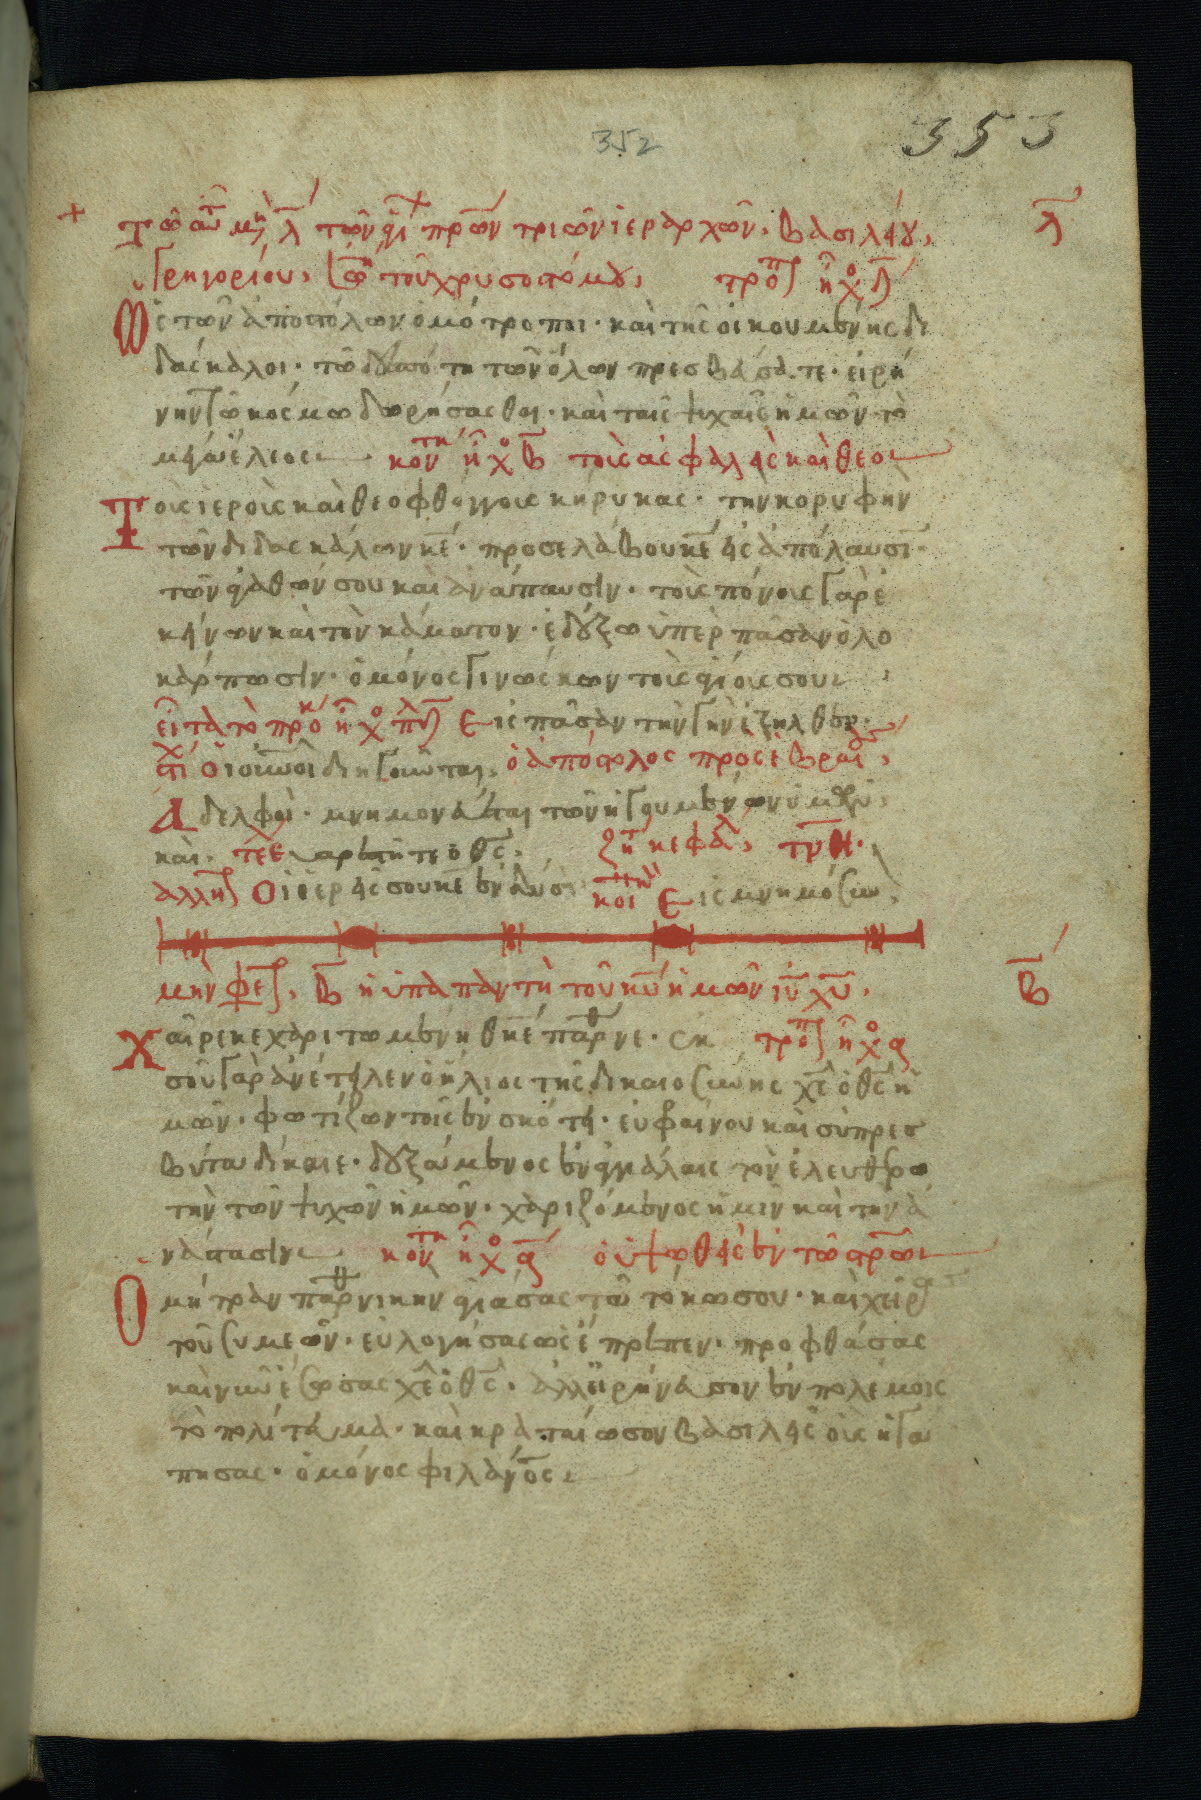 352 353
+ Τῶ αὐτ μη λ τῶν ἁγι πρων τριῶν ἱεραρχῶν, βασιλείου, λ
Γρηγορίου, ἰω τοῦ χρυσοστόμου, τροπ ἦχο δ
Ὡς τῶν ἀποστόλων ὁμότροποι· καὶ τῆς οἰκουμένης δι
δάσκαλοι· τῶ δεσπότη τῶν ὅλων πρεσβεύσατε· εἰρή
νην τῶ κόσμω δωρήσασθαι· καὶ ταῖς ψυχαῖς ἡμῶν τὸ
μέγα ἔλεος κον ἦχο β τοὺς ἀσφαλεῖς καὶ θεο
Τοὺς ἱεροὺς καὶ θεοφθόγγους κήρυκας· τὴν κορυφὴν
τῶν διδασκάλων κε· προσελάβου κε εἰς ἀπόλαυσι·
τῶν ἀγαθῶν σου καὶ ἀνάπαυσιν· τοὺς πόνους γὰρ ἐ
κείνων καὶ τὸν κάματον· ἐδέξω ὑπὲρ πᾶσαν ὁλο
κάρπωσιν· ὁ μόνος γινώσκων τοὺς ἁγίους σου
εἶτα τὸ προκ ἦχο πλ δ Εἰς πᾶσαν τὴν γῆν ἐξῆλθεν·
στι Οἱ οὐνοὶ διηγοῦνται, ὁ ἀπόστολος πρὸς ἑβραι,
Αδελφοὶ· μνημονεύεται τῶν ἡγουμένων ὑμῶν,
καὶ· τε εὐαρεστῆτε ὁ θς, ζη κεφα, τνη·
αλλη Οἱ ἱερεῖς σου κε ἐνδύσ κοι Εἰς μνημόσυν,
μὴν φε, β ἡ ὑπαπαντὴ τοῦ κυ ἡμῶν ιυ χυ, β
Χαῖρε κεχαριτωμένη θκε παρνε· ἐκ τροπ ἦχο α
σοῦ γὰρ ἀνέτειλεν ὁ ἥλιος τῆς δικαιοσύνης χς ὁ θς ἡ
μῶν· φωτίζων τοὺς ἐν σκότει· εὐφραίνου καὶ σὺ πρεσ
βύτα δίκαιε· δεξάμενος ἐν ἀγκάλαις τὸν ἐλευθερω
τὴν τῶν ψυχῶν ἡμῶν· χαριζόμενος ἡμῖν καὶ τὴν ἀ
νάστασιν κον ἦχο α ὁ ὑψωθεὶς ἐν τῶ στρω
Ὁ μήτραν παρνικὴν ἁγιάσας τῶ τόκω σου· καὶ χεῖρ
τοῦ συμεὼν· εὐλογήσας ὡς ἔπρεπεν· προφθάσας
καὶ νῦν ἔσωσας χε ὁ θς· ἀλλ εἰρήνευσον ἐν πολέμοις
τὸ πολίτευμα· καὶ κραταίωσον βασιλεῖς οὓς ἠγά
πησας· ὁ μόνος φιλανος